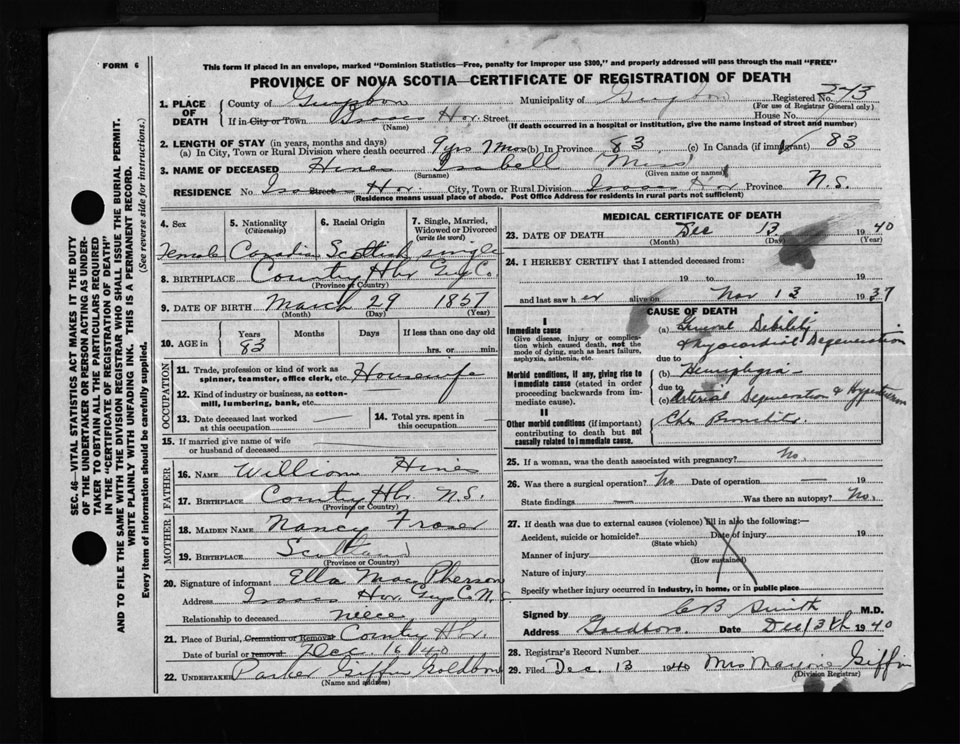 FORM 6
This form if placed in an envelope, marked "Dominion Statistics—Free, penalty for improper use $300," and properly addressed will pass through the mail "FREE"
PROVINCE OF NOVA SCOTIA—CERTIFICATE OF REGISTRATION OF DEATH
1. PLACE OF DEATH County of Guysboro Municipality of Guysboro Registered No. 243
(For use of Registrar General only)
If in City or Town Isaacs Hbr. Street House No.
(Name) (If death occurred in a hospital or institution, give the name instead of street and number)
2. LENGTH OF STAY (in years, months and days)
(a) In City, Town or Rural Division where death occurred 9 yrs 7 mos (b) In Province 83 (c) In Canada (if immigrant) 83
3. NAME OF DECEASED Hines Isabell (Miss)
(Surname) (Given name or names)
RESIDENCE No. Isaacs Street Hbr. City, Town or Rural Division Isaacs Hbr Province N.S.
(Residence means usual place of abode. Post Office Address for residents in rural parts not sufficient)
4. Sex 5. Nationality (Citizenship) 6. Racial Origin 7. Single, Married, Widowed or Divorced (write the word)
Female Canadian Scottish single
8. BIRTHPLACE Country Hbr Guy Co.
(Province or Country)
9. DATE OF BIRTH March 29 1857
(Month) (Day) (Year)
10. AGE in Years Months Days If less than one day old
83 hrs. or min.
OCCUPATION
11. Trade, profession or kind of work as spinner, teamster, office clerk, etc. Housewife
12. Kind of industry or business, as cotton-mill, lumbering, bank, etc.
13. Date deceased last worked at this occupation —
14. Total yrs. spent in this occupation
15. If married give name of wife or husband of deceased
FATHER
16. NAME William Hines
17. BIRTHPLACE Country Hbr. N.S.
(Province or Country)
MOTHER
18. MAIDEN NAME Nancy Fraser
19. BIRTHPLACE Scotland
(Province or Country)
20. Signature of informant Ella MacPherson
Address Isaacs Hbr. Guy Co N.S.
Relationship to deceased neice
21. Place of Burial, Cremation or Removal Country Hbr.
Date of burial or removal Dec. 16 1940
22. UNDERTAKER Parker Giffin Goldboro
(Name and address)
MEDICAL CERTIFICATE OF DEATH
23. DATE OF DEATH Dec 13 1940
(Month) (Day) (Year)
24. I HEREBY CERTIFY that I attended deceased from:
19 to 19
and last saw her alive on Nov 13 1937
CAUSE OF DEATH
I
Immediate cause
Give disease, injury or complication which caused death, not the mode of dying, such as heart failure, asphyxia, asthenia, etc.
(a) General Debility & Myocardial Degeneration
due to
Morbid conditions, if any, giving rise to immediate cause (stated in order proceeding backwards from immediate cause).
(b) Hemiplegia
due to
(c) Arterial Degeneration &
II
Other morbid conditions (if important) contributing to death but not causally related to immediate cause.
Chr. Bronchitis.
25. If a woman, was the death associated with pregnancy? No.
26. Was there a surgical operation? No Date of operation — 19
State findings — Was there an autopsy? No.
27. If death was due to external causes (violence) fill in also the following:—
Accident, suicide or homicide? Date of injury 19
(State which)
Manner of injury
(How sustained)
Nature of injury
Specify whether injury occurred in industry, in home, or in public place
Signed by C B Smith M.D.
Address Goldboro. Date Dec 13th 1940
28. Registrar's Record Number
29. Filed Dec. 13 1940 Mrs Marjorie Giffin
(Division Registrar)
SEC. 46—VITAL STATISTICS ACT MAKES IT THE DUTY
OF THE UNDERTAKER OR PERSON ACTING AS UNDER-
TAKER TO OBTAIN ALL THE PARTICULARS REQUIRED
IN THE "CERTIFICATE OF REGISTRATION OF DEATH"
AND TO FILE THE SAME WITH THE DIVISION REGISTRAR WHO SHALL ISSUE THE BURIAL PERMIT.
WRITE PLAINLY WITH UNFADING INK. THIS IS A PERMANENT RECORD.
Every item of information should be carefully supplied. (See reverse side for instructions.)